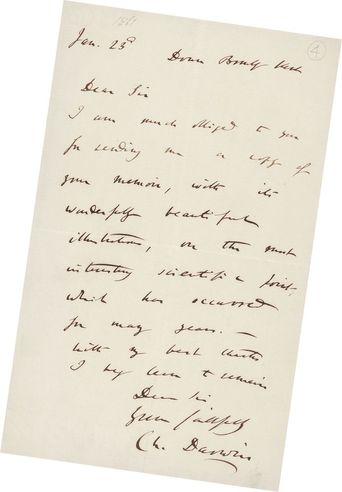 1861
4
Jan. 23d
Down Bromley Kent
Dear Sir
I am much obliged to you
for sending me a copy of
your memoir, with its
wonderfully beautiful
illustrations, on the most
interesting scientific point,
which has occurred
for many years. —
With my best thanks
I beg leave to remain
Dear Sir
Yours faithfully
Ch. Darwin